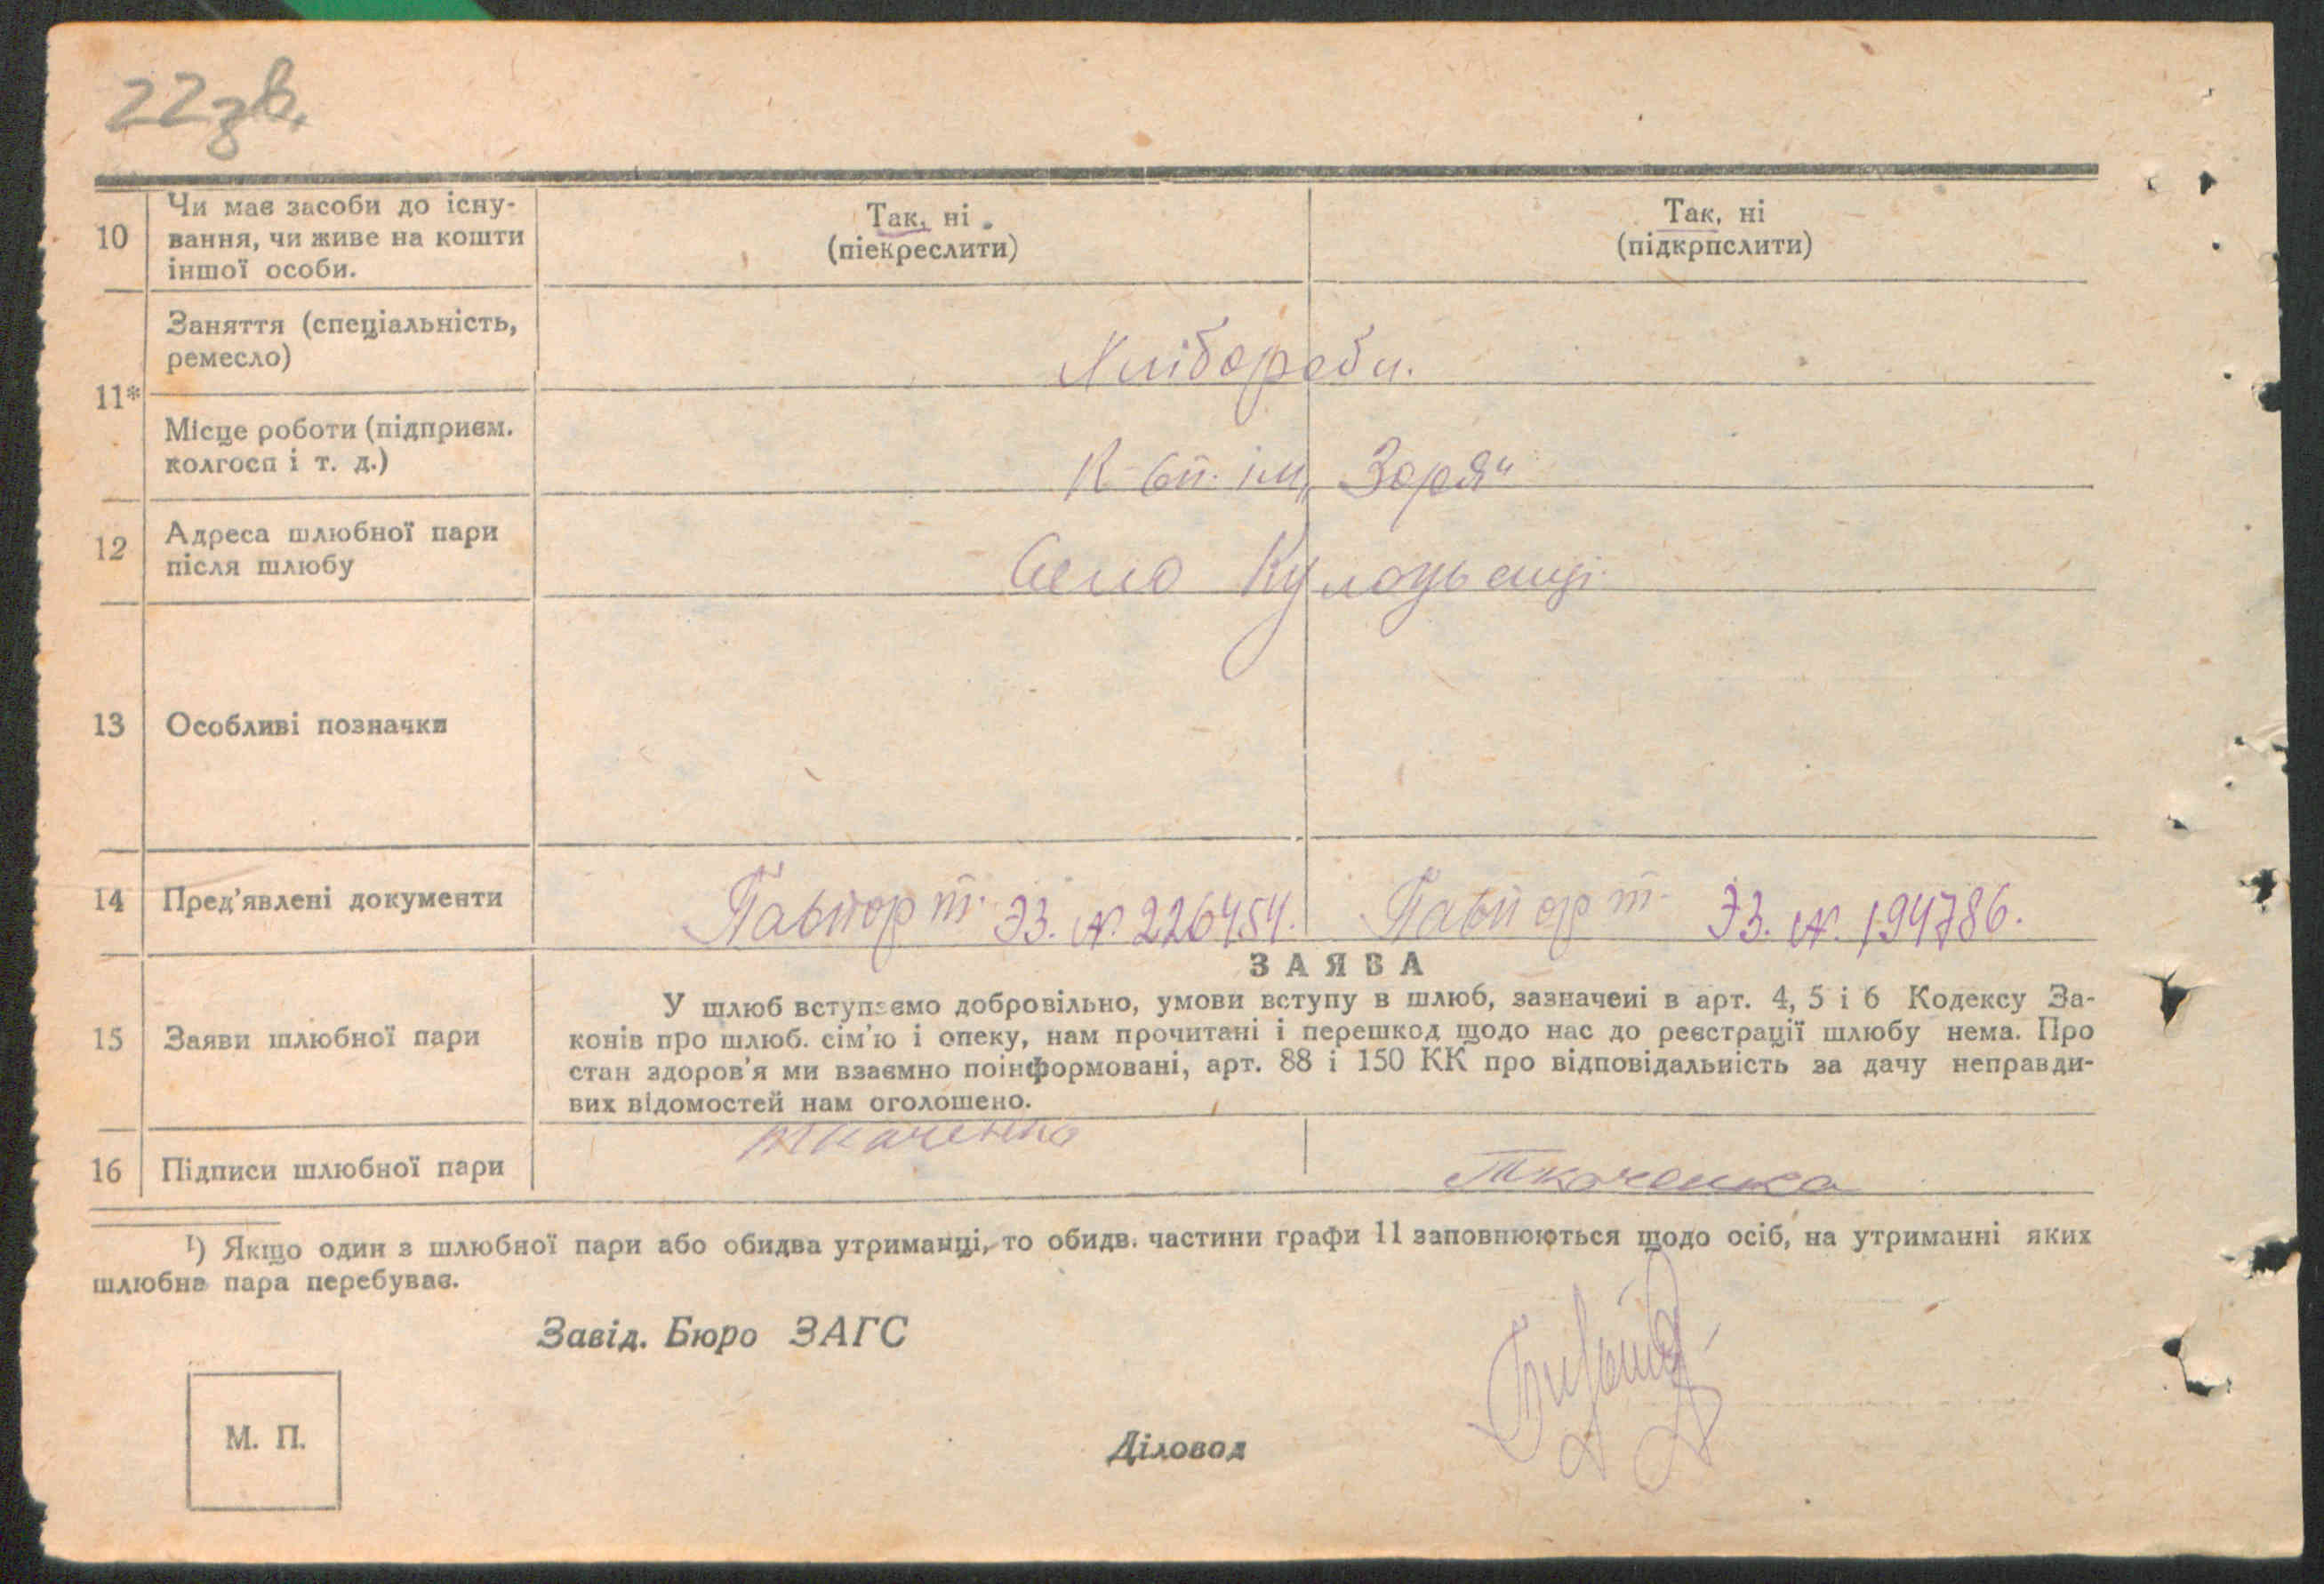 22зв.
10
Чи має засоби до існу-
вання, чи живе на кошти
іншої особи.
Так, ні.
(піекреслити)
Так, ні
(підкрпслити)
11*
Заняття (спеціальність,
ремесло)
Хлібороби.
Місце роботи (підприєм.
колгосп і т. д.)
К-сп. ім. „Зоря“
12
Адреса шлюбної пари
після шлюбу
Село
13
Особливі позначки
14
Пред'явлені документи
Паспорт. ЭЗ. № 226454.
Паспорт. ЭЗ. № 194786.
15
Заяви шлюбної пари
ЗАЯВА
У шлюб вступаємо добровільно, умови вступу в шлюб, зазначені в арт. 4, 5 і 6 Кодексу За-
конів про шлюб. сім'ю і опеку, нам прочитані і перешкод щодо нас до реєстрації шлюбу нема. Про
стан здоров'я ми взаємно поінформовані, арт. 88 і 150 КК про відповідальність за дачу неправди-
вих відомостей нам оголошено.
16
Підписи шлюбної пари
Ткаченко
Ткаченка
¹) Якщо один з шлюбної пари або обидва утриманці, то обидв. частини графи 11 заповнюються щодо осіб, на утриманні яких
шлюбна пара перебуває.
Завід. Бюро ЗАГС
М. П.
Діловод